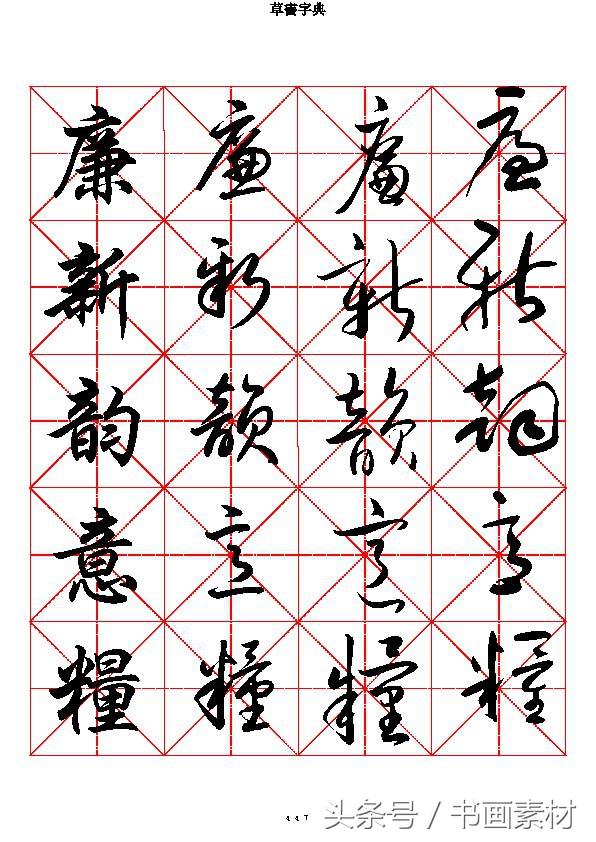 草書字典
廉 廉 廉 廉
新 新 新 新
韵 韻 韻 韵
意 意 意 意
糧 糧 糧 糧
447
头条号 / 书画素材